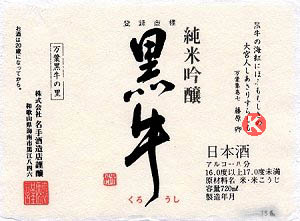 黒牛の海紅にほふももしきの
大宮人しあさりすらしも
万葉集巻七 藤原卿
登録商標
純米吟醸
黒牛
くろうし
万葉黒牛の里
株式会社 名手酒造店謹醸
和歌山県海南市黒江八四六
お酒は20歳になってから。
日本酒
アルコール分
16.0度以上17.0度未満
原材料名 米・米こうじ
容量720ml
製造年月
K